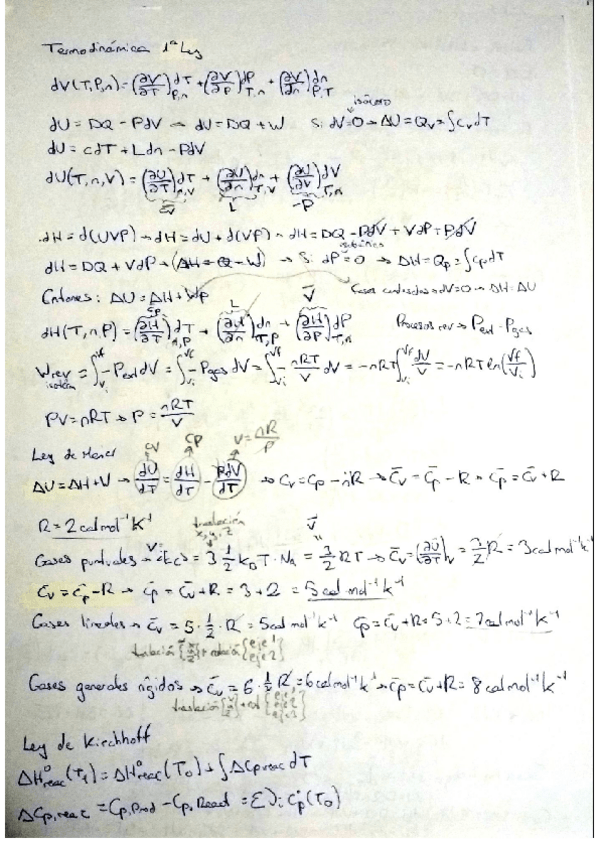 Termodinámica 1ª Ley
dV(T,P,n) = (∂V/∂T)P,n dT + (∂V/∂P)T,n dP + (∂V/∂n)P,T dn
isócoro
dU = DQ - PdV → dU = DQ + W Si dV=0 → ΔU = Qv = ∫cv dT
dU = cdT + Ldn - PdV
dU(T,n,V) = (∂U/∂T)n,V dT + (∂U/∂n)T,V dn + (∂U/∂V)T,n dV
cv L -P
dH = d(UVP) → dH = dU + d(VP) → dH = DQ - PdV + VdP + PdV
isobárico
dH = DQ + VdP → (ΔH = Q - W) → Si dP=0 → ΔH = Qp = ∫cp dT
Entonces: ΔU = ΔH + Wp dV=0 → ΔH = ΔU
cp L V
dH(T,n,P) = (∂H/∂T)n,P dT + (∂H/∂n)T,P dn + (∂H/∂P)T,n dP Procesos rev → Pext = Pgas
Wrev = ∫Vi Vf -Pext dV = ∫Vi Vf -Pgas dV = ∫Vi Vf -nRT/V dV = -nRT ∫Vi Vf dV/V = -nRT ln(Vf/Vi)
isoterm
PV = nRT → P = nRT/V
Ley de
cv cp V = nR/P
ΔU = ΔH + V → dU/dT = dH/dT - PdV/dT → Cv = Cp - nR → C̄v = C̄p - R → C̄p = C̄v + R
R = 2 cal mol⁻¹ K⁻¹
traslación
x, y, z
Gases puntuales → <Ec> = 3 1/2 kB T · NA = 3/2 RT → C̄v = (∂Ū/∂T)v = 3/2 R = 3 cal mol⁻¹ K⁻¹
C̄v = C̄p - R → C̄p = C̄v + R = 3 + 2 = 5 cal mol⁻¹ K⁻¹
Gases lineales → C̄v = 5 · 1/2 · R = 5 cal mol⁻¹ K⁻¹ C̄p = C̄v + R = 5 + 2 = 7 cal mol⁻¹ K⁻¹
traslación { x y z } + rotación { eje 1 eje 2 }
Gases generales rígidos → C̄v = 6 · 1/2 R = 6 cal mol⁻¹ K⁻¹ → C̄p = C̄v + R = 8 cal mol⁻¹ K⁻¹
traslación { x y z } + rot { eje 1 eje 2 eje 3 }
Ley de Kirchhoff
ΔH°reac (T1) = ΔH°reac (T0) + ∫ΔCp,reac dT
ΔCp,reac = Cp,Prod - Cp,React = Σνi Cp°(T0)